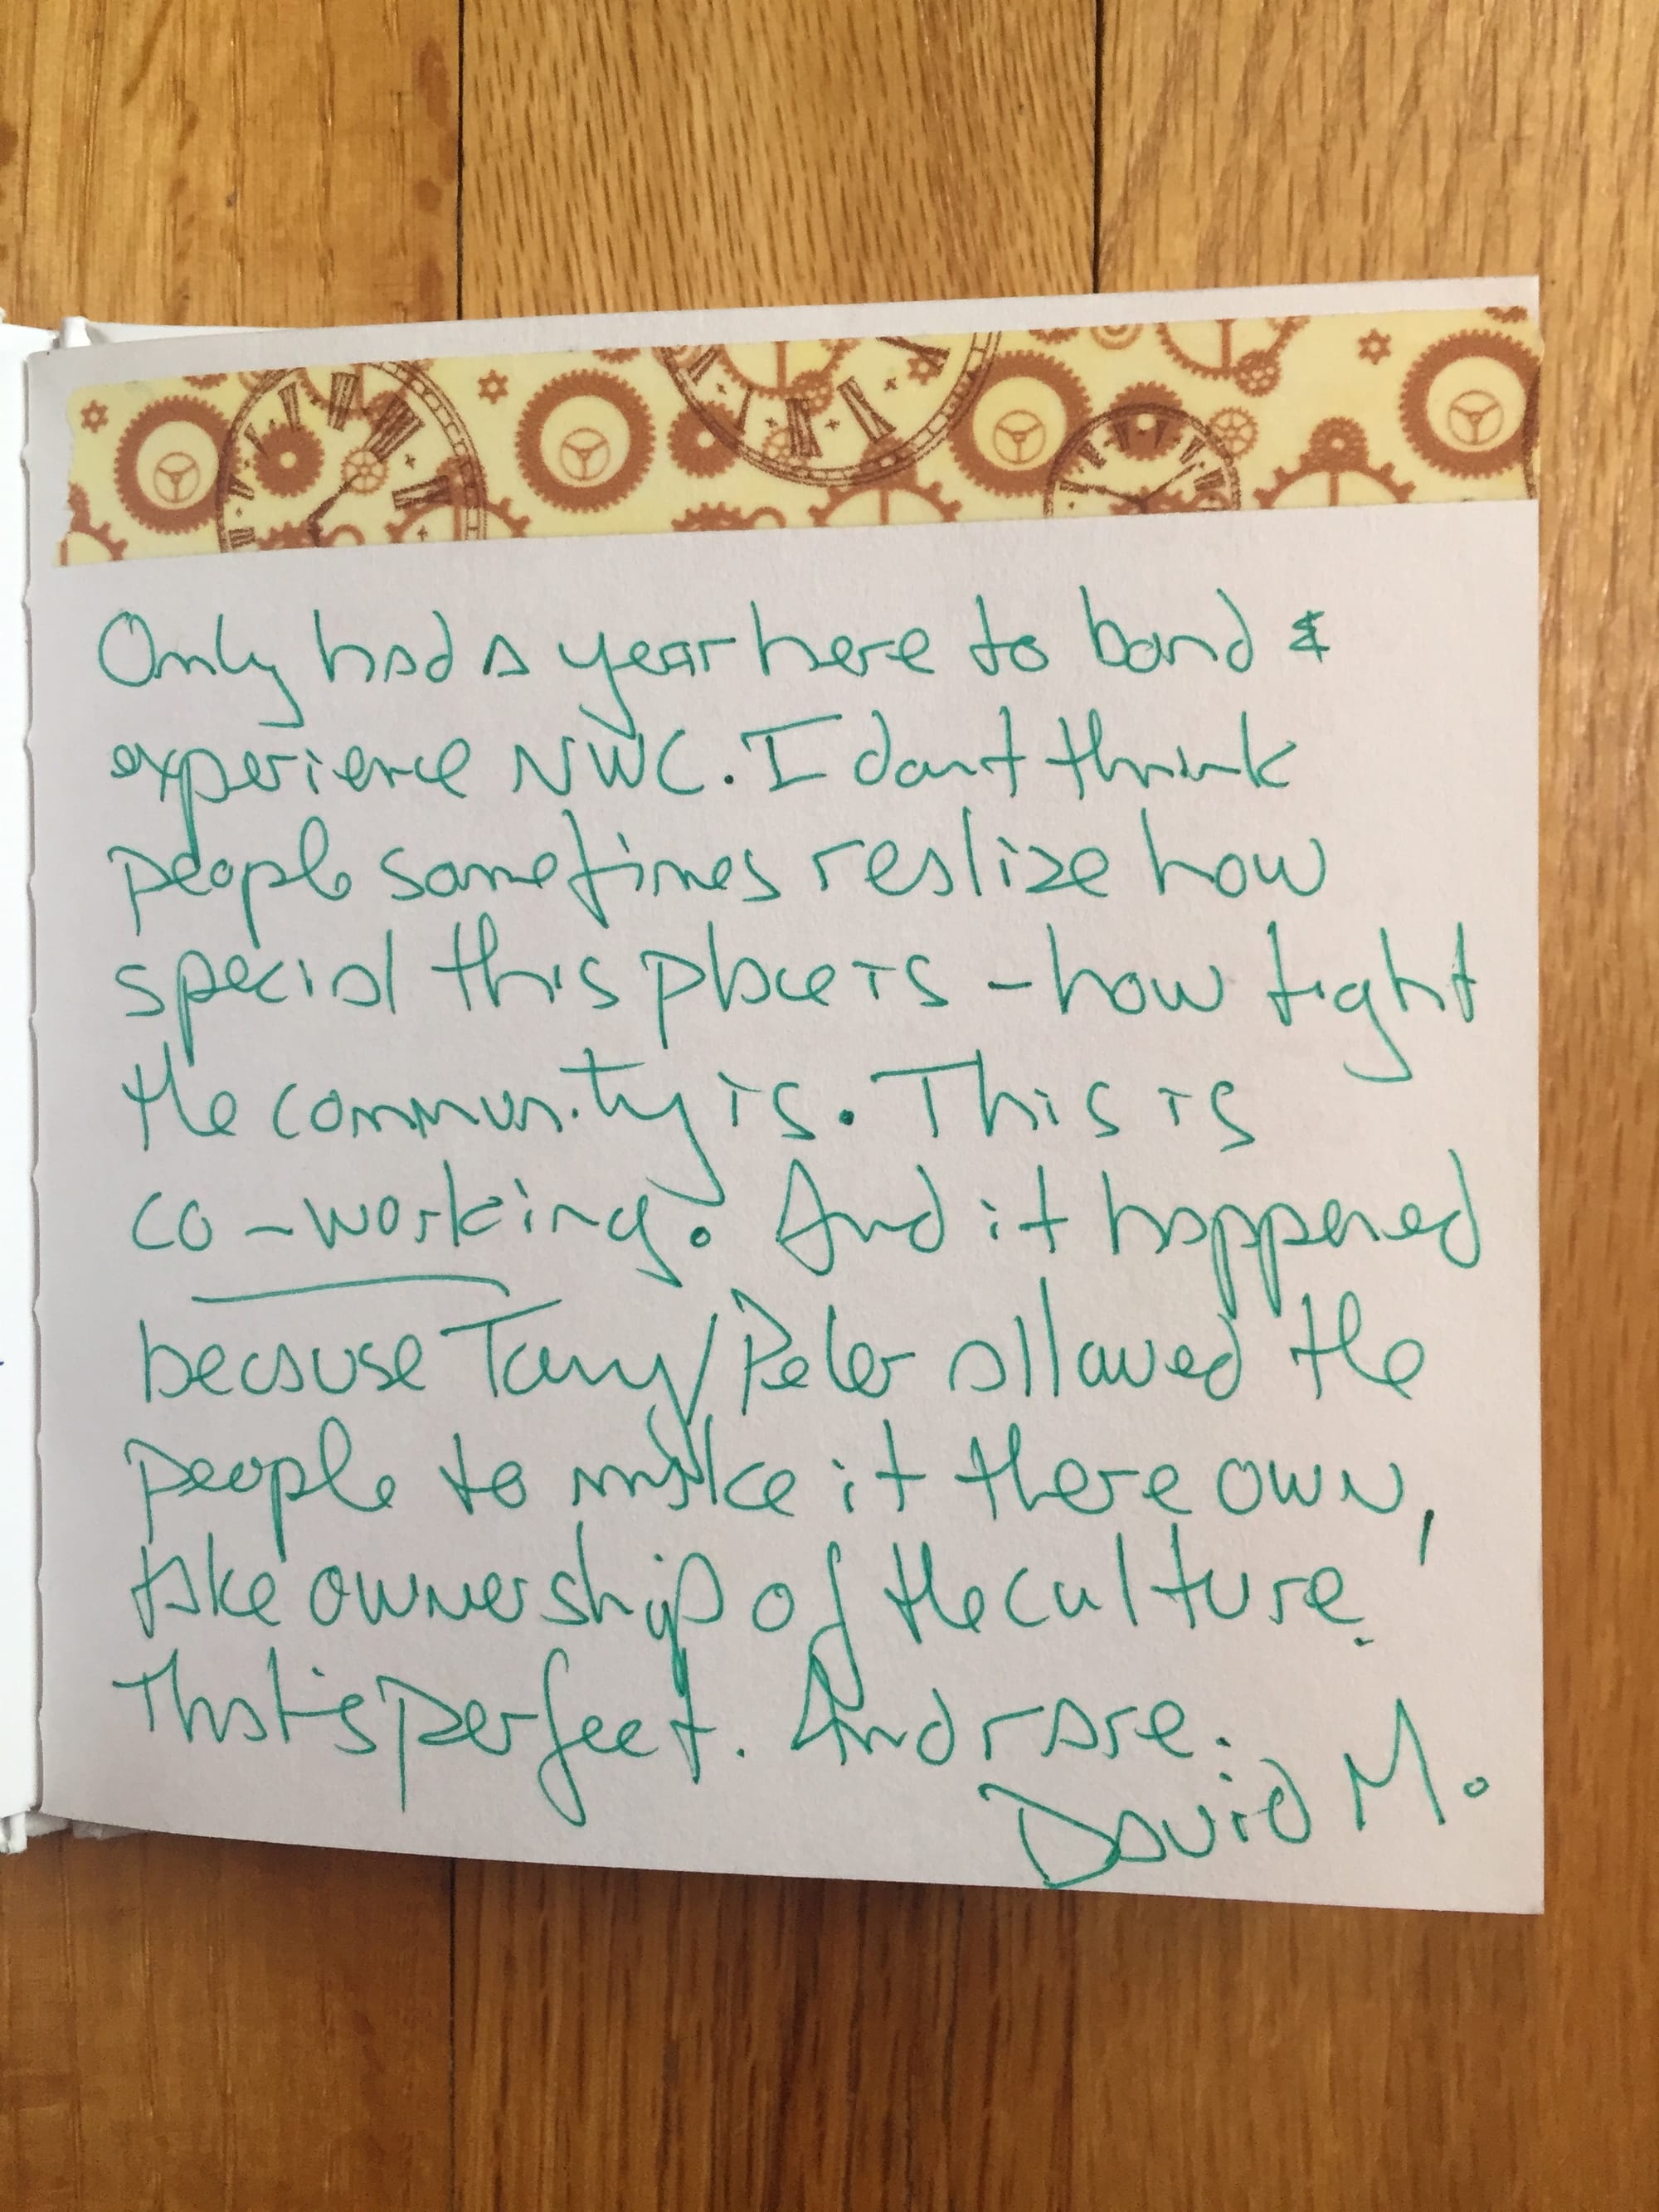 Only had a year here to bond &
experience NWC. I dont think
people sometimes realize how
special this place is - how tight
the community is. This is
co-working. And it happened
because Tony/Peter allowed the
people to make it there own,
take ownership of the culture.
That's perfect. And rare.
David M.